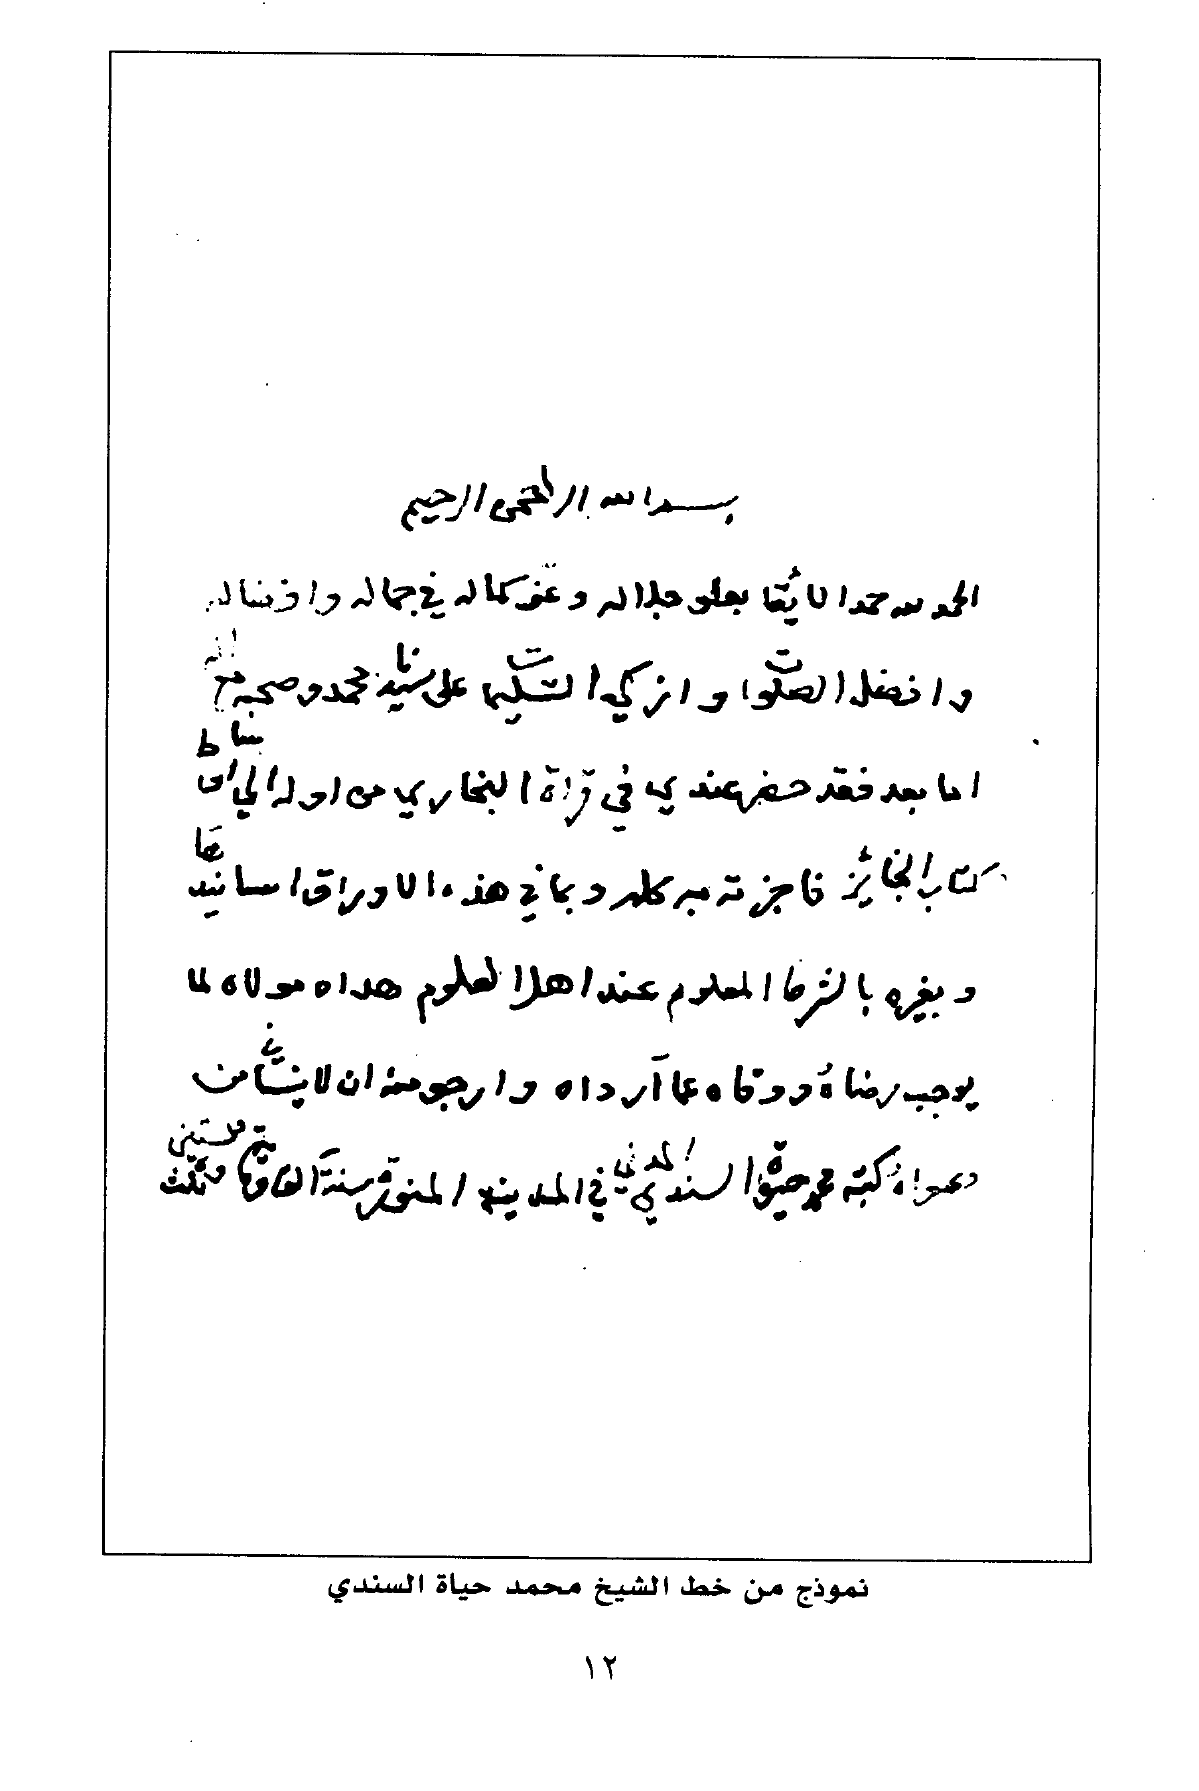 بسم الله الرحمن الرحيم
الحمد لله حمدا لائقا بعلو جلاله وعز كماله في جماله وافضاله
وافضل الصلوات وازكي التسليمات على سيدنا محمد وصحبه مع اله
اما بعد فقد حضر عندي في قراة البخاري من اوله الي
كتاب الجنائز فاجزته به كله وبما في هذه الاوراق اسانيدها
وبغيره بالشرط المعلوم عند اهل العلوم هداه مولاه لما
يوجب رضاه ووقاه عما آرداه وارجو منه ان لا ينساني من
دعواه كتبه محمد حيوة السندي المدني في المدينة المنورة سنة الف ومائة وثلث وستين
نموذج من خط الشيخ محمد حياة السندي
١٢